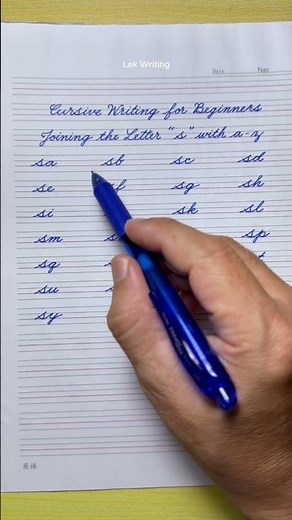 Lek Writing
Date Page
Cursive Writing for Beginners
Joining the Letter "s" with a-z
sa sb sc sd
se sf sg sh
si sk sl
sm sp
sq
su
sy
英语